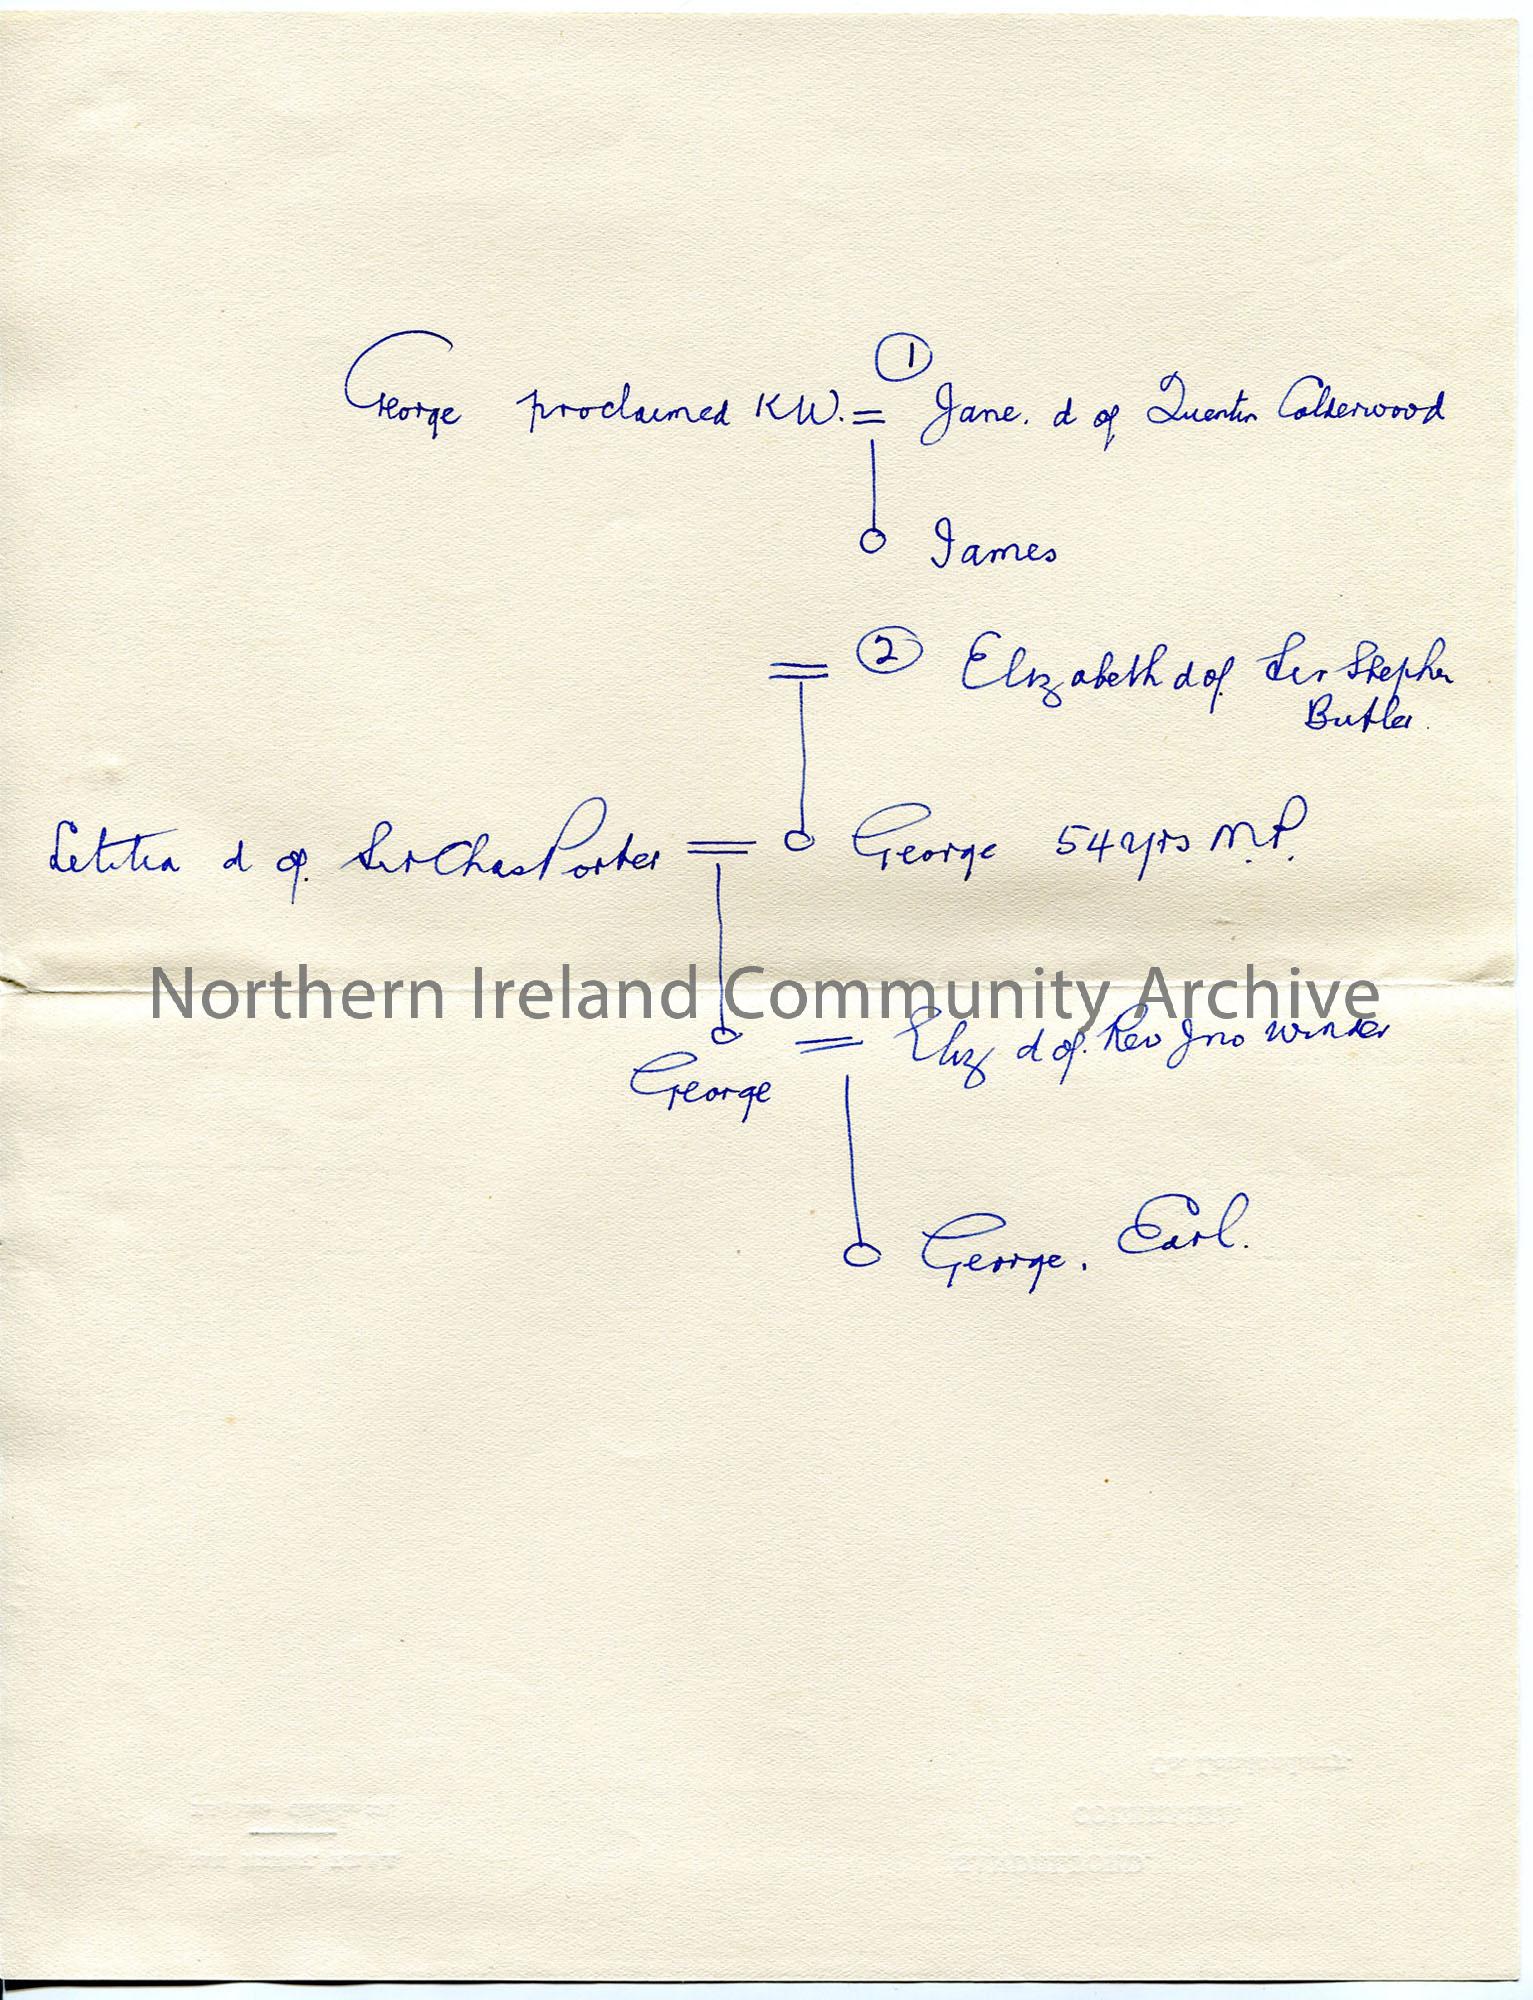 ①
George proclaimed KW. = Jane. d of Quentin Calderwood
James
= ② Elizabeth d of. Sir Stephen
Butler.
Letitia d of. Sir Chas Porter = George 54 yrs M.P.
Northern Ireland Community Archive
George = Eliz d of. Rev Jno Winder
George. Earl.